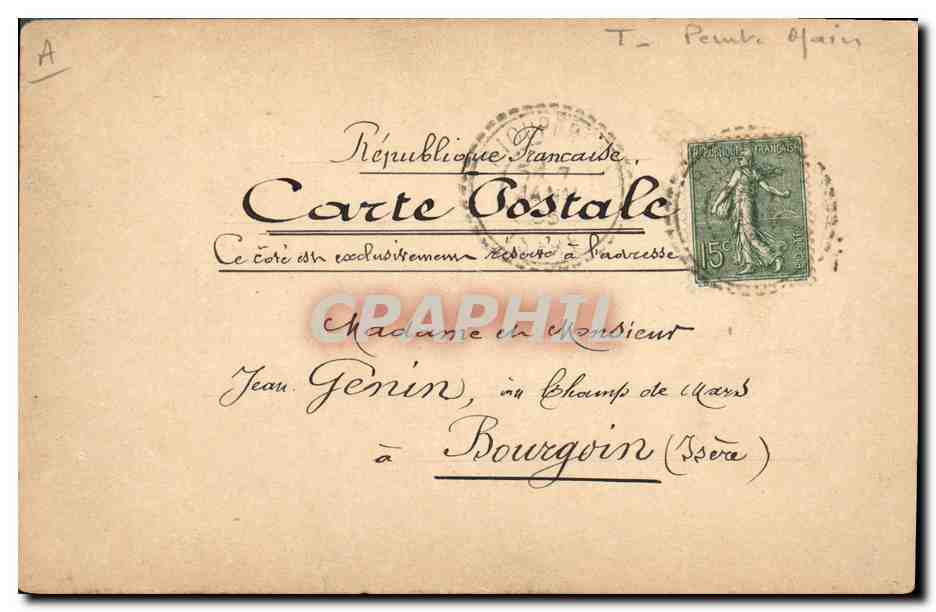 A
T- Peint Main
République Française.
Carte Postale
Ce côté est exclusivement réservé à l'adresse
REPUBLIQUE FRANCAISE
15c
POSTES
CRAPHIL
Madame et Monsieur
Jean Génin, au Champ de Mars
à Bourgoin (Isère)